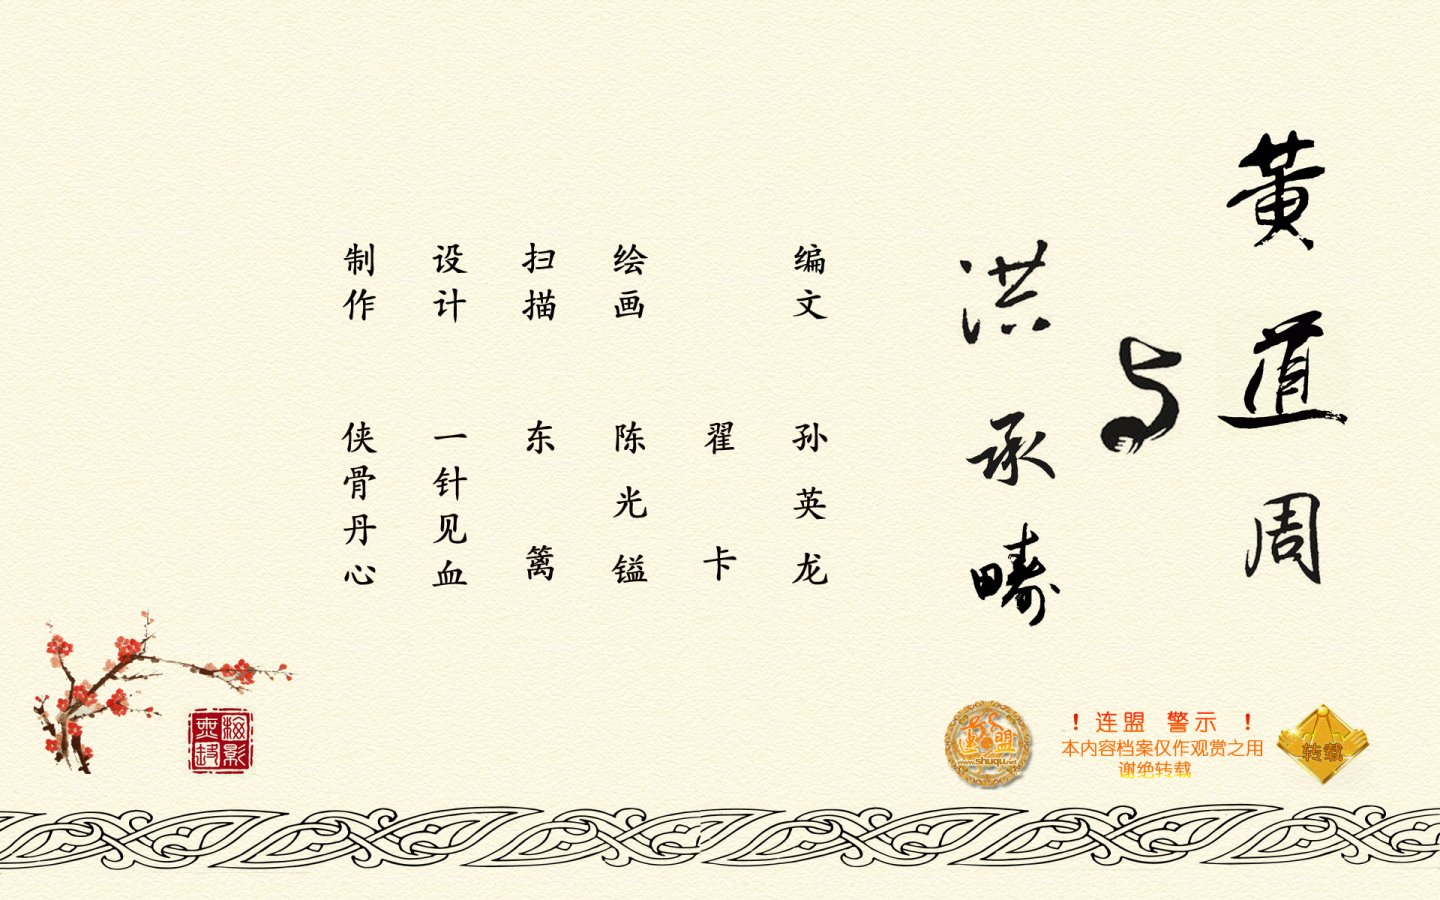 黄道周
与
洪承畴
编文 孙英龙
翟卡
绘画 陈光镒
扫描 东篱
设计 一针见血
制作 侠骨丹心
连盟
www.shuqu.net
！连盟 警示 ！
本内容档案仅作观赏之用
谢绝转载
转载